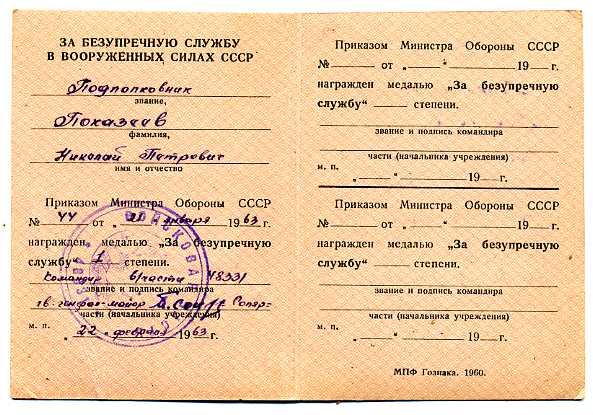 ЗА БЕЗУПРЕЧНУЮ СЛУЖБУ
В ВООРУЖЕННЫХ СИЛАХ СССР
Подполковник
звание,
Показеев
фамилия,
Николай Петрович
имя и отчество
Приказом Министра Обороны СССР
№ 44 от „21“ января 1963 г.
награжден медалью „За безупречную
службу“ 1 степени.
Командир в/части 48331
звание и подпись командира
гв. майор
части (начальника учреждения)
м. п. „22“ февраля 1963 г.
ВОЙСКОВАЯ
Приказом Министра Обороны СССР
№ от „ “ 19 г.
награжден медалью „За безупречную
службу“ степени.
звание и подпись командира
части (начальника учреждения)
м. п. „ “ 19 г.
Приказом Министра Обороны СССР
№ от „ “ 19 г.
награжден медалью „За безупречную
службу“ степени.
звание и подпись командира
части (начальника учреждения)
м. п. „ “ 19 г.
МПФ Гознака. 1960.